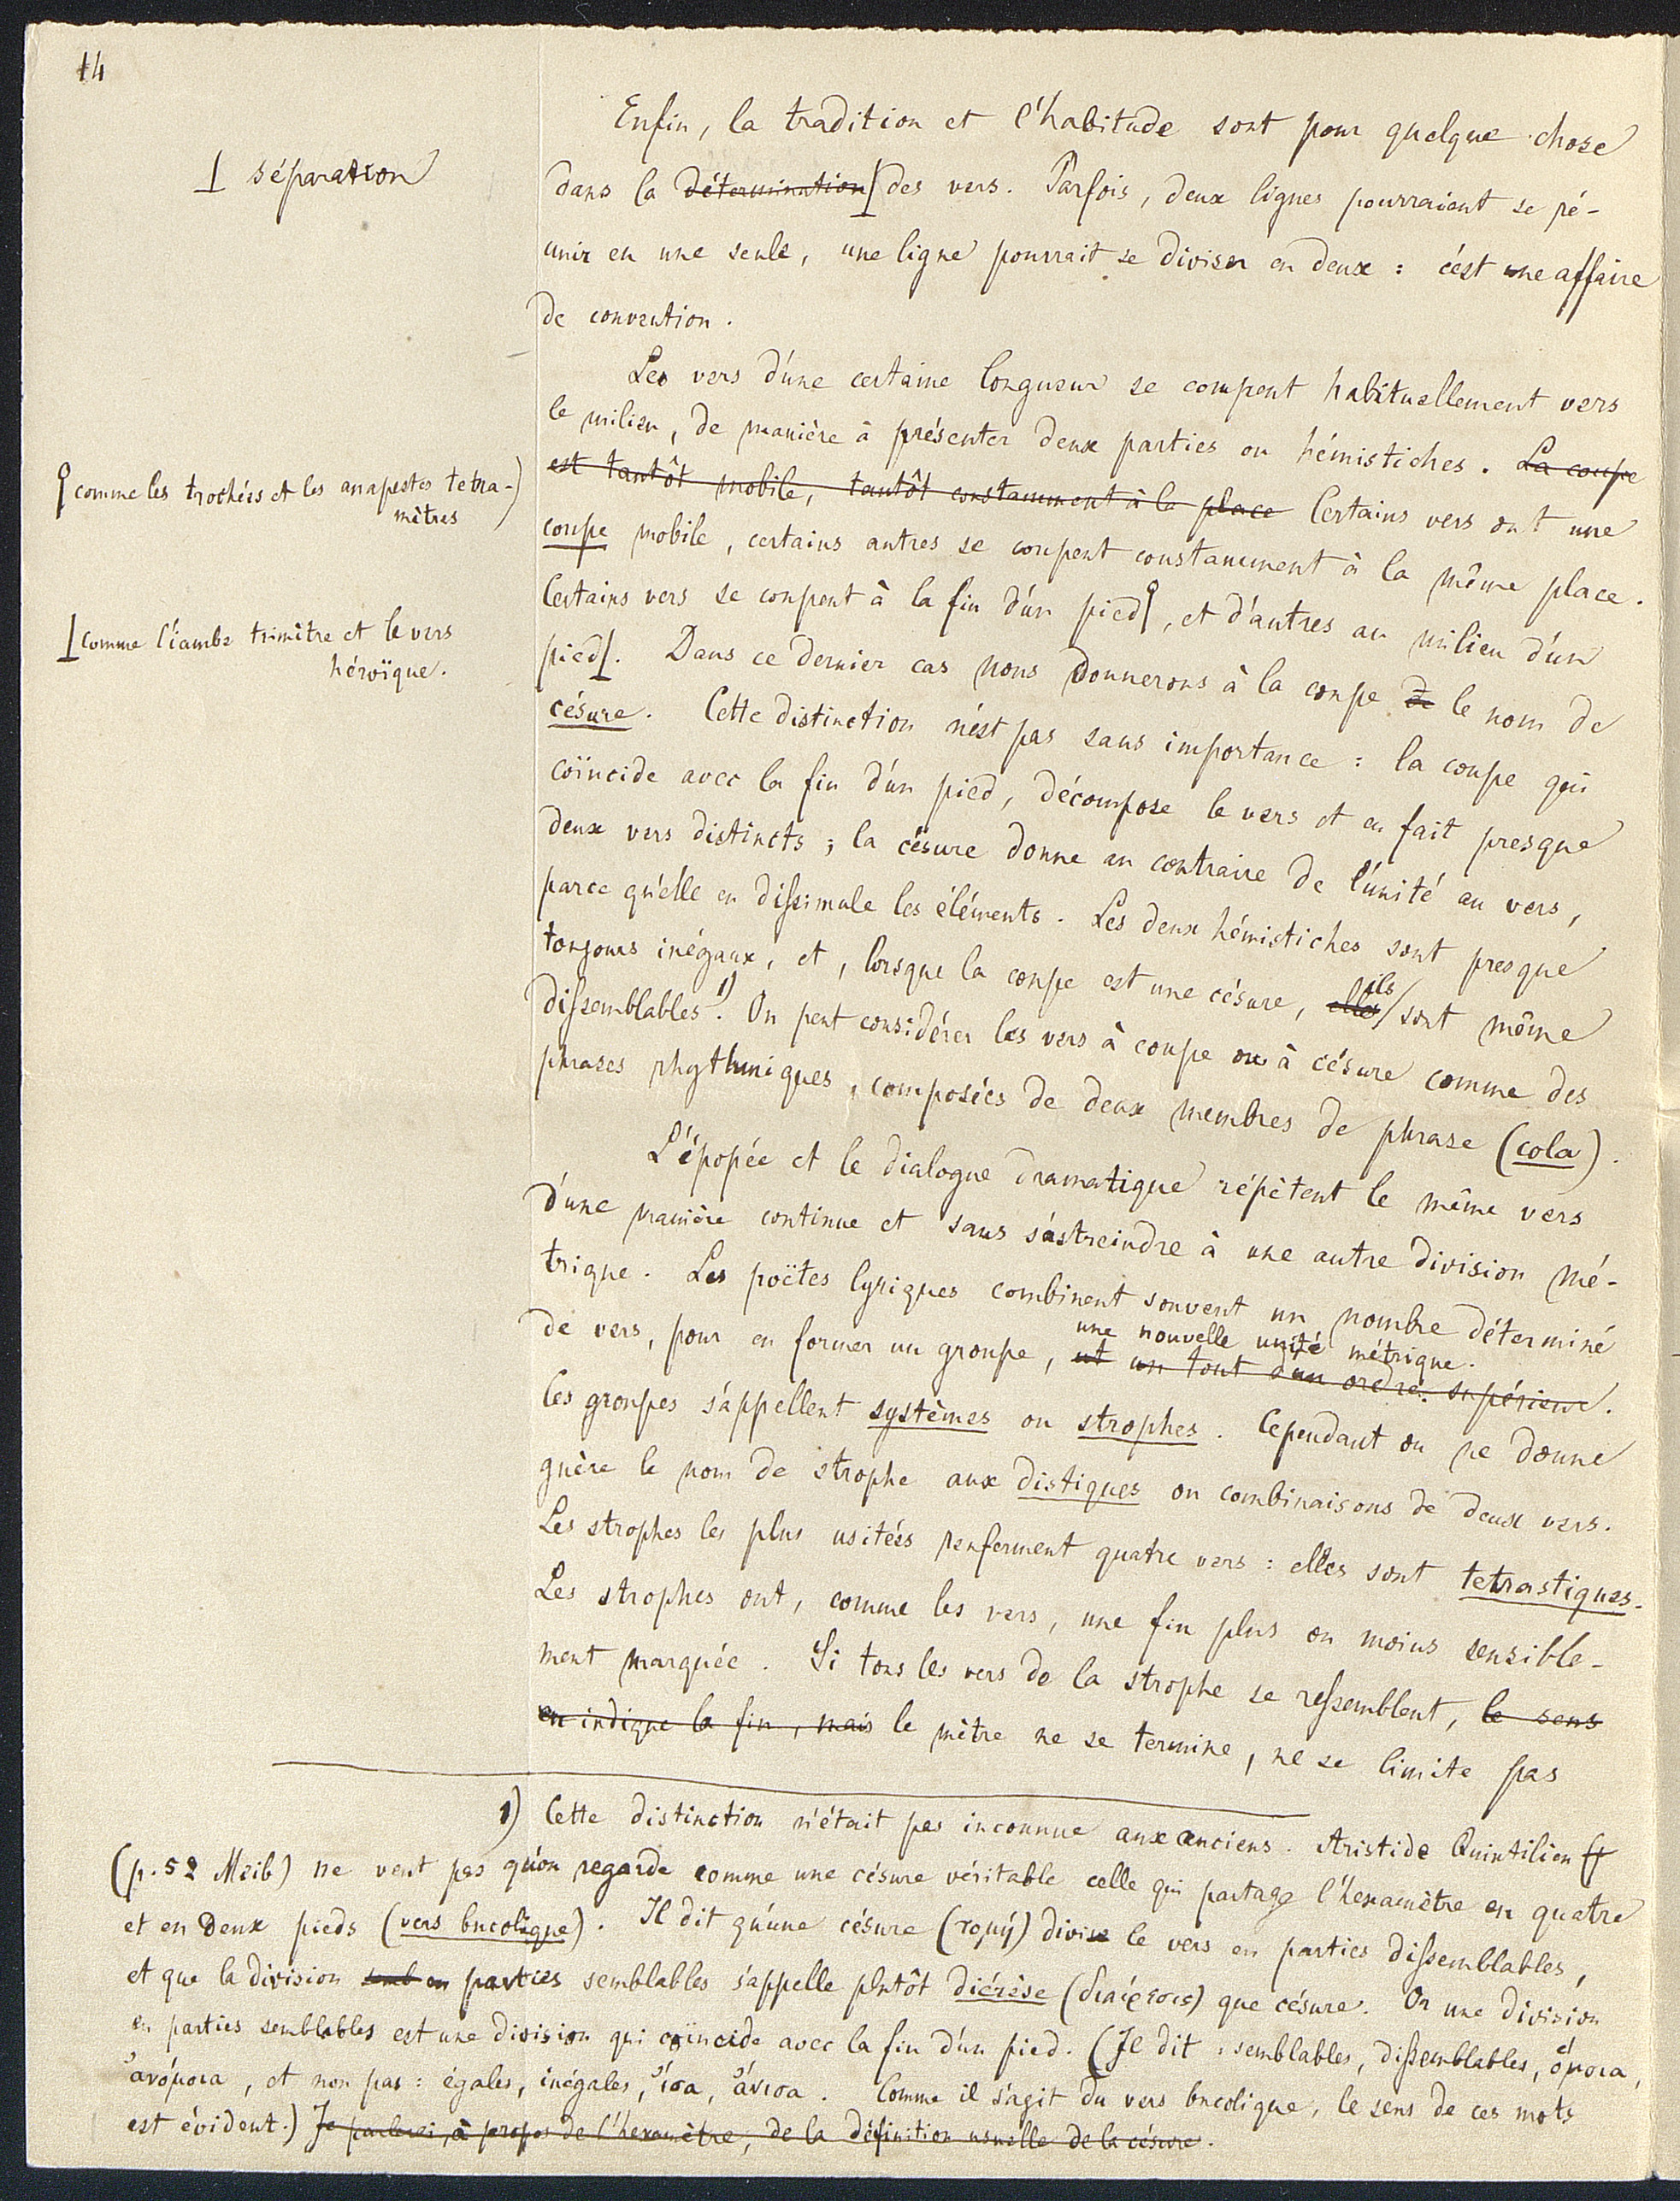 14
Enfin, la tradition et l'habitude sont pour quelque chose
⊥ séparation
dans la détermination⊥ des vers. Parfois, deux lignes pourraient se ré-
unir en une seule, une ligne pourrait se diviser en deux : c'est une affaire
de convention.
Les vers d'une certaine longueur se coupent habituellement vers
le milieu, de manière à présenter deux parties ou hémistiches. La coupe
comme les trochées et les anapestes tetra-
mètres
est tantôt mobile, tantôt constamment à la place Certains vers ont une
coupe mobile, certains autres se coupent constamment à la même place.
Certains vers se coupent à la fin d'un pied, et d'autres au milieu d'un
⊥ comme l'iambe trimètre et le vers
héroïque.
pied⊥. Dans ce dernier cas nous donnerons à la coupe de le nom de
césure. Cette distinction n'est pas sans importance : la coupe qui
coïncide avec la fin d'un pied, décompose le vers et en fait presque
deux vers distincts ; la césure donne au contraire de l'unité au vers,
parce qu'elle en dissimule les éléments. Les deux hémistiches sont presque
toujours inégaux, et, lorsque la coupe est une césure, elles ils sont même
dissemblables.1) On peut considérer les vers à coupe ou à césure comme des
phrases rhythmiques, composées de deux membres de phrase (cola).
L'épopée et le dialogue dramatique répètent le même vers
d'une manière continue et sans s'astreindre à une autre division mé-
trique. Les poëtes lyriques combinent souvent un nombre déterminé
une nouvelle unité métrique.
de vers, pour en former un groupe, et un tout d'un ordre supérieur.
Ces groupes s'appellent systèmes ou strophes. Cependant on ne donne
guère le nom de strophe aux distiques ou combinaisons de deux vers.
Les strophes les plus usitées renferment quatre vers : elles sont tetrastiques.
Les strophes ont, comme les vers, une fin plus ou moins sensible-
ment marquée. Si tous les vers de la strophe se ressemblent, le sens
en indique la fin, mais le mètre ne se termine, ne se limite pas
1) Cette distinction n'était pas inconnue aux anciens. Aristide Quintilien
(p. 52 Meib) ne veut pas qu'on regarde comme une césure véritable celle qui partage l'hexamètre en quatre
et en deux pieds (vers bucolique). Il dit qu'une césure (τομή) divise le vers en parties dissemblables,
et que la division semb en parties semblables s'appelle plutôt diérèse (διαίρεσις) que césure. Or une division
en parties semblables est une division qui coïncide avec la fin d'un pied. (Il dit : semblables, dissemblables, ὅμοια,
ἀνόμοια, et non pas : égales, inégales, ἴσα, ἄνισα. Comme il s'agit du vers bucolique, le sens de ces mots
est évident.) Je parlerai, à propos de l'hexamètre, de la définition usuelle de la césure.